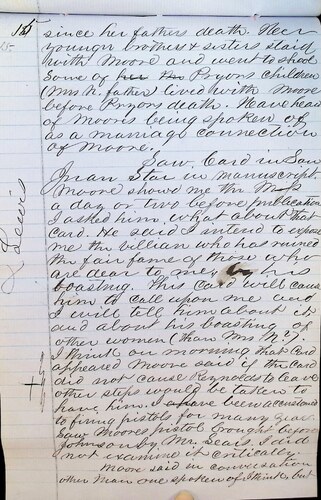 15
since her fathers death. Her
younger brothers & sisters staid
with Moore and went to school
Some of Pryors children
(Mrs N. father) lived with Moore
before Pryors death. Have heard
of Mooris being spoken of
as a marriage connection
of Moore.
Saw Card in San
Juan Star in manuscript.
Moore showed me the MS
a day or two before publication
I asked him what about that
card. He said I intend to expose
me the villian who has ruined
the fair fame of those who
are dear to me by his
boasting. This Card will cause
him to call upon me and
I will tell him about it
and about his boasting of
other women (than Mrs N?).
I think on morning that Card
appeared Moore said if the Card
did not cause Reynolds to leave
other steps would be taken to
have him. I have been accustomed
to firing pistols for many years
Saw Moores pistol brought before
Johnson by Mr. Sears. I did
not examine it critically.
Moore said in conversation
other man one spoken of I think, but
Lewis